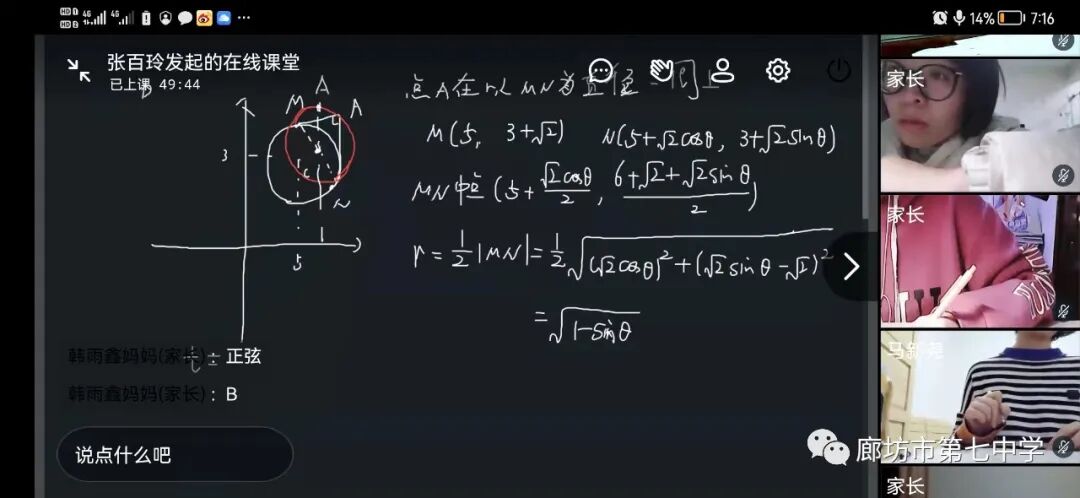 14% 7:16
张百玲发起的在线课堂
已上课 49:44
点A在以MN为直径
M(5, 3+√2) N(5+√2cosθ, 3+√2sinθ)
MN中点(5+√2cosθ/2, 6+√2+√2sinθ/2)
r=1/2|MN|=1/2√(√2cosθ)²+(√2sinθ-√2)²
=√1-sinθ
A
M A
3
N
5
韩雨鑫妈妈(家长): 正弦
韩雨鑫妈妈(家长): B
说点什么吧
家长
家长
马新尧
家长
廊坊市第七中学